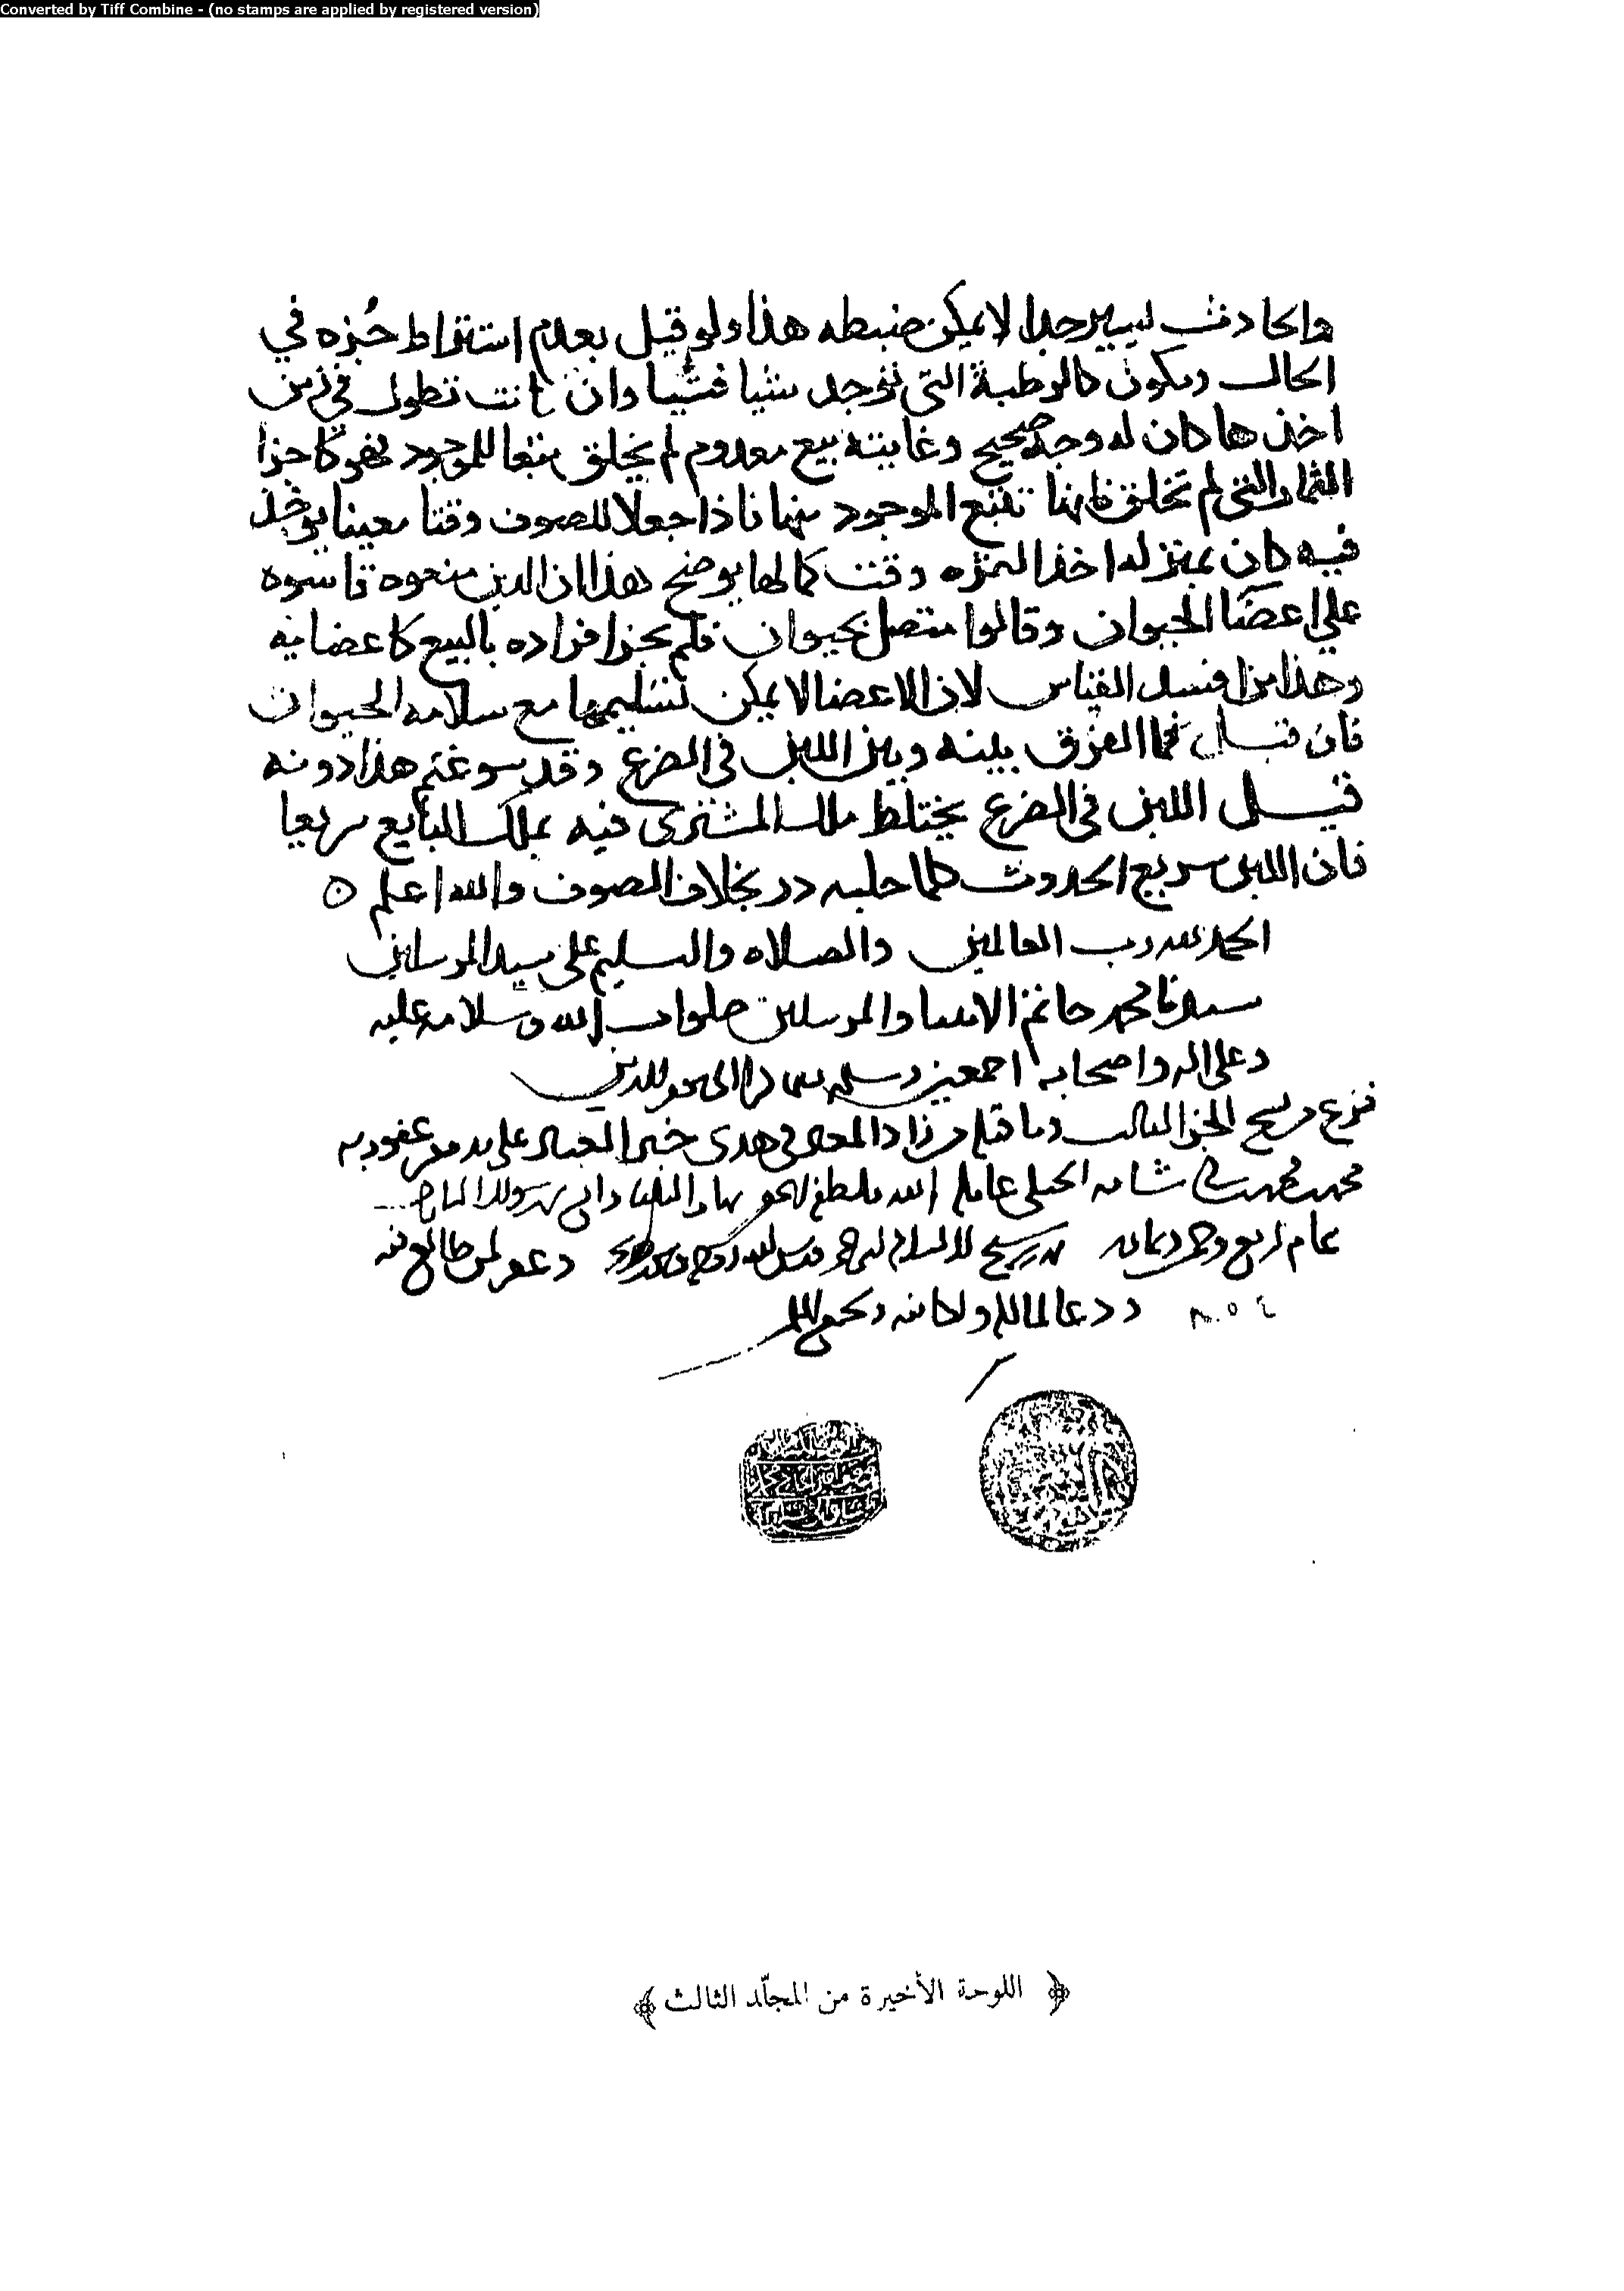 Converted by Tiff Combine - (no stamps are applied by registered version)
والحادث يسير جدا لا يمكن ضبطه هذا ولو قيل بعدم اشتراط جُزه في
الحال ويكون كالرطبة التي تؤخذ شيا فشيا وان كانت تطول في زمن
اخذها كان له وجه صحيح وغايته بيع معدوم لم يخلق تبعا للموجود فهو كاجزا
الثمار التي لم تخلق فانها تتبع الموجود منها فاذا جعلا للصوف وقتا معينا يوخذ
فيه كان بمنزله اخذ الثمره وقت كمالها يوضح هذا ان الذين منعوه قاسوه
على اعضا الحيوان وقالوا متصل بحيوان فلم يجز افراده بالبيع كاعضايه
وهذا من افسد القياس لان الاعضا لا يمكن تسليمها مع سلامه الحيوان
فان قيل فما الفرق بينه وبين اللبن في الضرع وقد سوغتم هذا دونه
قيل اللبن في الضرع يختلط ملك المشترى فيه بملك البايع سريعا
فان اللبن سريع الحدوث كلما حلبه در بخلاف الصوف والله اعلم
الحمد لله رب العالمين والصلاه والتسليم على سيد المرسلين
سيدنا محمد خاتم الانبيا والمرسلين صلوات الله وسلامه عليه
وعلى اله واصحابه اجمعين وسلم الى يوم الدين
فرغ من نسخ الجزا الثالث وما قبله من زاد المعاد في هدى خير العباد على يد عفو ربه
محمد الحنبلى عامله الله بلطفه
عام اربع وغفر لمن طالع فيه
ودعا لمالكه ولكاتبه
٨٥٤
﴿ اللوحة الأخيرة من المجلّد الثالث ﴾